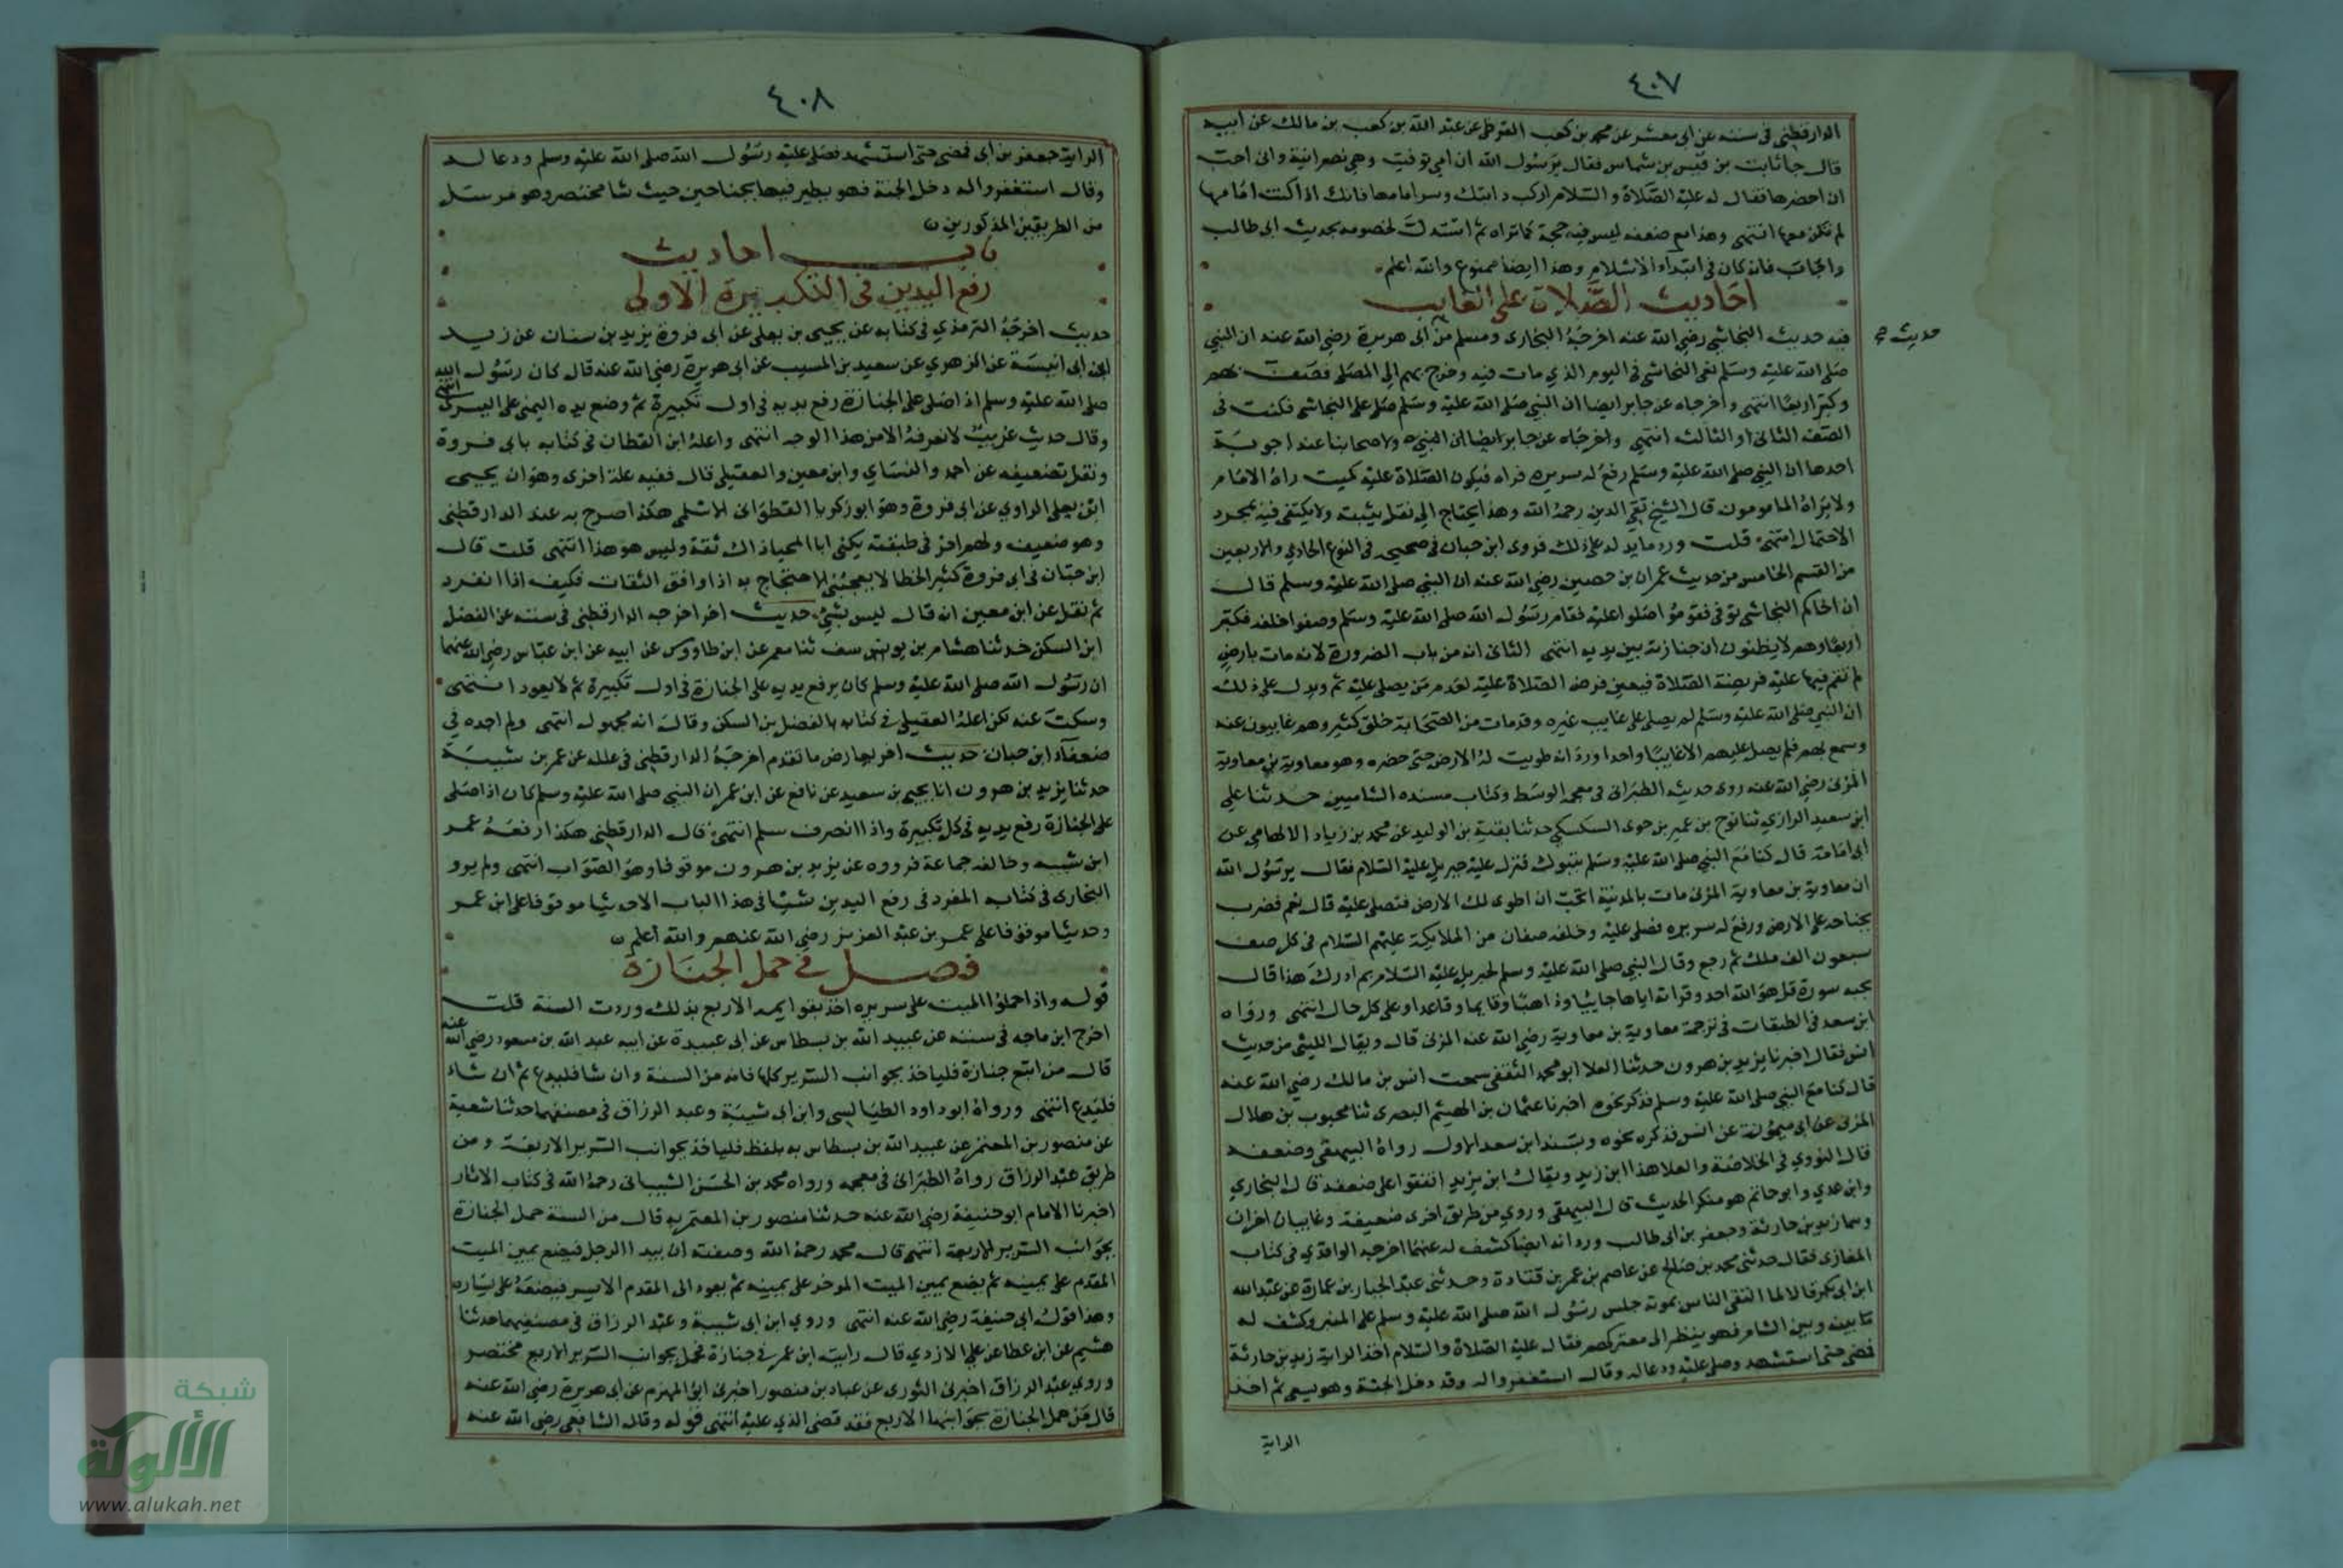 ٤٠٧
الدارقطني في سننه عن ابي معشر عن محمد بن كعب القرظي عن عبد الله بن كعب بن مالك عن ابيه
قال جا ثابت بن قيس بن شماس فقال يرسول الله ان امي توفيت وهي نصرانية واني احب
ان احضرها فقال له عليه الصلاة والسلام اركب دابتك وسر امامها فانك اذا كنت امامها
لم تكن معها انتهى وهذا مع ضعفه ليس فيه حجة كما تراه ثم استدل لخصومه بحديث ابي طالب
واجاب فانه كان في ابتداء الاسلام وهذا ايضا ممنوع والله اعلم
احاديث الصلاة على الغايب
حديث
فيه حديث النجاشي رضي الله عنه اخرجه البخاري ومسلم من ابي هريرة رضي الله عنه ان النبي
صلى الله عليه وسلم نعى النجاشي في اليوم الذي مات فيه وخرج بهم الى المصلى فصف بهم
وكبر اربعا انتهى واخرجاه عن جابر ايضا ان النبي صلى الله عليه وسلم صلى على النجاشي فكنت في
الصف الثاني او الثالث انتهى واخرجاه عن جابر ايضا ان النبي ولاصحابنا عنه اجوبة
احدها ان النبي صلى الله عليه وسلم رفع له سريره فراه فيكون الصلاة عليه كميت راه الامام
ولا يراه المامومون قال الشيخ تقي الدين رحمه الله وهذا يحتاج الى نقل يثبته ولا يكتفي فيه بمجرد
الاحتمال انتهى قلت ورد ما يدل على ذلك فروى ابن حبان في صحيحه في النوع الحادي والاربعين
من القسم الخامس من حديث عمران بن حصين رضي الله عنه ان النبي صلى الله عليه وسلم قال
ان اخاكم النجاشي توفي فقوموا صلوا عليه فقام رسول الله صلى الله عليه وسلم وصفوا خلفه فكبر
اربعا وهم لا يظنون ان جنازته بين يديه انتهى الثاني انه من باب الضرورة لانه مات بارض
لم تقم فيها عليه فريضة الصلاة فيعين فرض الصلاة عليه لعدم من يصلي عليه ثم ويدل على ذلك
ان النبي صلى الله عليه وسلم لم يصل على غايب غيره وقد مات من الصحابة خلق كثير وهم غايبون عنه
وسمع بهم فلم يصل عليهم الا غايبا واحدا ورد انه طويت له الارض حتى حضره وهو معاوية بن معاوية
المزني رضي الله عنه روى حديثه الطبراني في معجمه الوسط وكتاب مسند الشاميين حدثنا علي
ابن سعيد الرازي ثنا نوح بن عمير بن حوى السكسكي حدثنا بقية بن الوليد عن محمد بن زياد الالهامي عن
ابي امامة قال كنا مع النبي صلى الله عليه وسلم بتبوك فنزل عليه جبريل عليه السلام فقال يرسول الله
ان معاوية بن معاوية المزني مات بالمدينة اتحب ان اطوى لك الارض فتصلي عليه قال نعم فضرب
بجناحه على الارض ورفع له سريره فصلى عليه وخلفه صفان من الملايكة عليهم السلام في كل صف
سبعون الف ملك ثم رجع وقال النبي صلى الله عليه وسلم لجبريل عليه السلام بم ادرك هذا قال
بحبه سورة قل هو الله احد وقراته اياها جايئا وذاهبا وقايما وقاعدا وعلى كل حال انتهى ورواه
ابن سعد في الطبقات في ترجمة معاوية بن معاوية رضي الله عنه المزني قال ويقال الليثي من حديث
انس فقال اخبرنا يزيد بن هرون حدثنا العلا ابو محمد الثقفي سمعت انس بن مالك رضي الله عنه
قال كنا مع النبي صلى الله عليه وسلم فذكر نحوه اخبرنا عثمان بن الهيثم البصري ثنا محبوب بن هلال
المزني عن ابي ميمونة عن انس فذكره نحوه وبسند ابن سعد الاول رواه البيهقي وضعفه
قال النووي في الخلاصة والعلا هذا ابن زيد ويقال ابن يزيد اتفقوا على ضعفه قال البخاري
وابن عدي وابو حاتم هو منكر الحديث قال البيهقي وروي من طريق اخرى ضعيفة وغايبان اخران
وهما زيد بن حارثة وجعفر بن ابي طالب ورد انه ايضا كشف له عنهما اخرجه الواقدي في كتاب
المغازي فقال حدثني محمد بن صالح عن عاصم بن عمر بن قتادة وحدثني عبد الجبار بن عمارة عن عبد الله
ابن ابي بكر قالا لما التقى الناس بموته جلس رسول الله صلى الله عليه وسلم على المنبر وكشف له
ما بينه وبين الشام فهو ينظر الى معتركهم فقال عليه الصلاة والسلام اخذ الراية زيد بن حارثة
فمضى حتى استشهد وصلى عليه ودعا له وقال استغفروا له وقد دخل الجنة وهو يسعى ثم اخذ
الراية
٤٠٨
الراية جعفر بن ابي فمضى حتى استشهد فصلى عليه رسول الله صلى الله عليه وسلم ودعا له
وقال استغفروا له دخل الجنة فهو يطير فيها بجناحين حيث شا مختصر وهو مرسل
من الطريقين المذكورين
باب احاديث
رفع اليدين في التكبيرة الاولى
حديث اخرجه الترمذي في كتابه عن يحيى بن يعلى عن ابي فروة يزيد بن سنان عن زيد
ابن ابي انيسة عن الزهري عن سعيد بن المسيب عن ابي هريرة رضي الله عنه قال كان رسول الله
صلى الله عليه وسلم اذا صلى على الجنازة رفع يديه في اول تكبيرة ثم وضع يده اليمنى على اليسرى انتهى
وقال حديث غريب لا نعرفه الا من هذا الوجه انتهى واعله ابن القطان في كتابه بابي فروة
ونقل تضعيفه عن احمد والنساي وابن معين والعقيلي قال ففيه علة اخرى وهو ان يحيى
ابن يعلى الراوي عن ابي فروة وهو ابو زكريا القطواني الاسلمي هكذا صرح به عند الدارقطني
وهو ضعيف ولهم اخر في طبقته يكنى ابا المحياة ذاك ثقة وليس هو هذا انتهى قلت قال
ابن حبان في ابي فروة كثير الخطا لا يعجبني الاحتجاج به اذا وافق الثقات فكيف اذا انفرد
ثم نقل عن ابن معين انه قال ليس بشئ حديث اخر اخرجه الدارقطني في سننه عن الفضل
ابن السكن حدثنا هشام بن يوسف ثنا معمر عن ابن طاووس عن ابيه عن ابن عباس رضي الله عنهما
ان رسول الله صلى الله عليه وسلم كان يرفع يديه على الجنازة في اول تكبيرة ثم لا يعود انتهى
وسكت عنه لكن اعله العقيلي في كتابه بالفضل بن السكن وقال انه مجهول انتهى ولم اجده في
ضعفاء ابن حبان حديث اخر يعارض ما تقدم اخرجه الدارقطني في علله عن عمر بن شبيبة
حدثنا يزيد بن هرون انا يحيى بن سعيد عن نافع عن ابن عمر ان النبي صلى الله عليه وسلم كان اذا صلى
على الجنازة رفع يديه في كل تكبيرة واذا انصرف سلم انتهى قال الدارقطني هكذا رفعه عمر
ابن شبيبه وخالفه جماعة فرووه عن يزيد بن هرون موقوفا وهو الصواب انتهى ولم يرو
البخاري في كتابه المفرد في رفع اليدين شيئا في هذا الباب الا حديثا موقوفا على ابن عمر
وحديثا موقوفا على عمر بن عبد العزيز رضي الله عنهم والله اعلم
فصل في حمل الجنازة
قوله واذا حملوا الميت على سريره اخذ بقوايمه الاربع بذلك وردت السنة قلت
اخرج ابن ماجه في سننه عن عبيد الله بن بسطاس عن ابي عبيدة عن ابيه عبد الله بن مسعود رضي الله عنه
قال من اتبع جنازة فلياخذ بجوانب السرير كلها فانه من السنة وان شا فليدع ثم ان شاء
فليدع انتهى ورواه ابو داود الطيالسي وابن ابي شيبة وعبد الرزاق في مصنفهما حدثنا شعبة
عن منصور بن المعتمر عن عبيد الله بن بسطاس به بلفظ فلياخذ بجوانب السرير الاربعة ومن
طريق عبد الرزاق رواه الطبراني في معجمه ورواه محمد بن الحسن الشيباني رحمه الله في كتاب الاثار
اخبرنا الامام ابو حنيفة رضي الله عنه حدثنا منصور بن المعتمر به قال من السنة حمل الجنازة
بجوانب السرير الاربعة انتهى قال محمد رحمه الله وصفته ان يبدا الرجل فيضع يمين الميت
المقدم على يمينه ثم يضع يمين الميت الموخر على يمينه ثم يعود الى المقدم الايسر فيضعه على يساره
وهذا قول ابي حنيفة رضي الله عنه انتهى وروي ابن ابي شيبة وعبد الرزاق في مصنفيهما حدثنا
هشيم عن ابن عطا عن علي الازدي قال رايت ابن عمر في جنازة فحمل بجوانب السرير الاربع مختصر
وروى عبد الرزاق اخبرني الثوري عن عباد بن منصور اخبرني ابو المهزم عن ابي هريرة رضي الله عنه
قال من حمل الجنازة بجوانبها الاربع فقد قضى الذي عليه انتهى قوله وقال الشافعي رضي الله عنه
شبكة
الألوكة
www.alukah.net